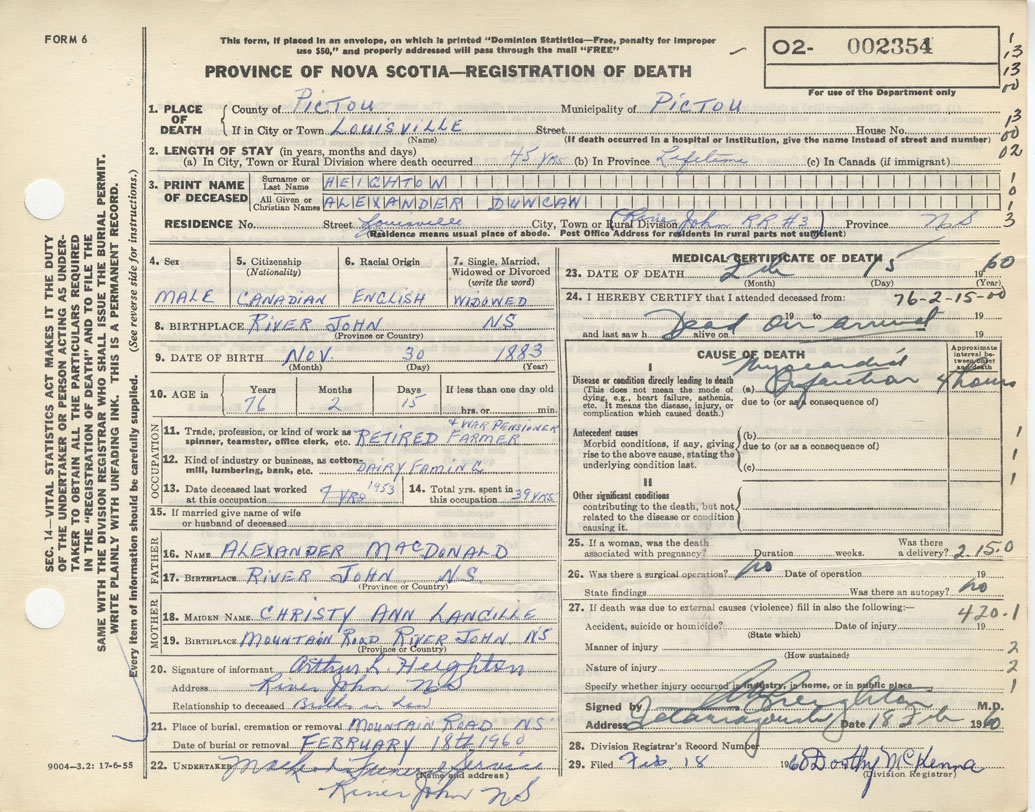 FORM 6
This form, if placed in an envelope, on which is printed "Dominion Statistics—Free, penalty for improper
use $50," and properly addressed will pass through the mail "FREE"
O2- 002354
For use of the Department only
PROVINCE OF NOVA SCOTIA—REGISTRATION OF DEATH
SEC. 14—VITAL STATISTICS ACT MAKES IT THE DUTY
OF THE UNDERTAKER OR PERSON ACTING AS UNDER-
TAKER TO OBTAIN ALL THE PARTICULARS REQUIRED
IN THE "REGISTRATION OF DEATH" AND TO FILE THE
SAME WITH THE DIVISION REGISTRAR WHO SHALL ISSUE THE BURIAL PERMIT.
WRITE PLAINLY WITH UNFADING INK. THIS IS A PERMANENT RECORD.
Every item of information should be carefully supplied. (See reverse side for instructions.)
1. PLACE OF DEATH County of PICTOU Municipality of PICTOU
If in City or Town LOUISVILLE Street House No.
(Name) (If death occurred in a hospital or institution, give the name instead of street and number)
2. LENGTH OF STAY (in years, months and days)
(a) In City, Town or Rural Division where death occurred 45 YRS (b) In Province Lifetime (c) In Canada (if immigrant)
3. PRINT NAME OF DECEASED Surname or Last Name HEIGHTON
All Given or Christian Names ALEXANDER DUNCAN
RESIDENCE No. Street Louisville City, Town or Rural Division (River John RR #3) Province NS
(Residence means usual place of abode. Post Office Address for residents in rural parts not sufficient)
4. Sex 5. Citizenship (Nationality) 6. Racial Origin 7. Single, Married, Widowed or Divorced (write the word)
MALE CANADIAN ENGLISH WIDOWED
8. BIRTHPLACE RIVER JOHN NS
(Province or Country)
9. DATE OF BIRTH NOV. 30 1883
(Month) (Day) (Year)
10. AGE in Years Months Days If less than one day old
76 2 15 hrs. or min.
OCCUPATION
11. Trade, profession, or kind of work as spinner, teamster, office clerk, etc. RETIRED FARMER + WAR PENSIONER
12. Kind of industry or business, as cotton-mill, lumbering, bank, etc. DAIRY FAMING
13. Date deceased last worked at this occupation 7 YRS 1953 14. Total yrs. spent in this occupation 39 YRS
15. If married give name of wife or husband of deceased
FATHER
16. NAME ALEXANDER MACDONALD
17. BIRTHPLACE RIVER JOHN NS.
(Province or Country)
MOTHER
18. MAIDEN NAME CHRISTY ANN LANGILLE
19. BIRTHPLACE MOUNTAIN ROAD RIVER JOHN NS
(Province or Country)
20. Signature of informant Arthur L Heighton
Address River John NS
Relationship to deceased Brother in Law
21. Place of burial, cremation or removal MOUNTAIN ROAD NS
Date of burial or removal FEBRUARY 18th 1960
22. UNDERTAKER Funeral Service
(Name and address)
River John NS
9004—3.2: 17-6-55
MEDICAL CERTIFICATE OF DEATH
23. DATE OF DEATH Feb 15 1960
(Month) (Day) (Year)
24. I HEREBY CERTIFY that I attended deceased from: 76-2-15-00
19 to 19
and last saw h alive on Dead on arrival 19
CAUSE OF DEATH
Approximate interval between onset and death
I
Disease or condition directly leading to death
(This does not mean the mode of dying, e.g., heart failure, asthenia, etc. It means the disease, injury, or complication which caused death.)
(a) Myocardial Infarction 4 hours
due to (or as a consequence of)
Antecedent causes
Morbid conditions, if any, giving rise to the above cause, stating the underlying condition last.
(b)
due to (or as a consequence of)
(c)
II
Other significant conditions
contributing to the death, but not related to the disease or condition causing it.
25. If a woman, was the death associated with pregnancy? Duration weeks. Was there a delivery? 2.15.0
26. Was there a surgical operation? No Date of operation 19
State findings Was there an autopsy? No
27. If death was due to external causes (violence) fill in also the following:—
Accident, suicide or homicide? Date of injury 19 420-1
(State which)
Manner of injury 2
(How sustained)
Nature of injury 2
Specify whether injury occurred in industry, in home, or in public place 1
Signed by M.D.
Address Tatamagouche Date 18 Feb 1960
28. Division Registrar's Record Number
29. Filed Feb. 18 1960 Dorothy McKenna
(Division Registrar)
1
13
13
00
13
00
02
1
0
1
3
1
1
1